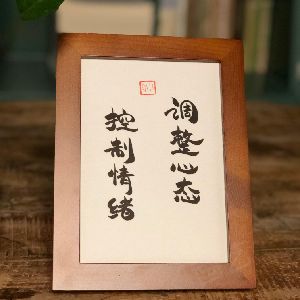 调整心态
控制情绪